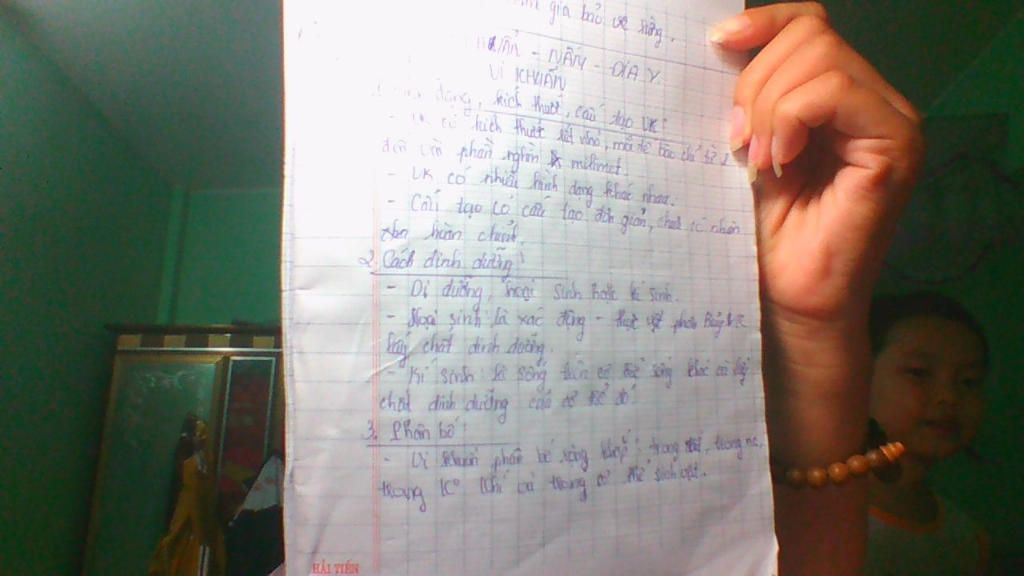 gia bảo vệ sống.
KHUẨN - NẤM - ĐỊA Y.
VI KHUẨN
dạng, kích thướt, cấu tạo VK:
- VK có kích thướt rất nhỏ, mỗi tế bào chỉ từ 1
đến vài phần nghìn milimet.
- VK có nhiều hình dạng khác nhau.
- Cấu tạo có cấu tạo đơn giản, chưa có nhân
hoàn chỉnh.
2. Cách dinh dưỡng:
- Dị dưỡng, hoại sinh hoặc kí sinh.
- Hoại sinh: là xác động - thực vật phân
lấy chất dinh dưỡng.
- Kí sinh: là sống trên cơ thể sống khác và lấy
chất dinh dưỡng của cơ thể đó.
3. Phân bố:
- Vi khuẩn phân bố rộng khắp: trong đất, trong nc,
trong K° khí và trong cơ thể sinh vật.
HẢI TIẾN